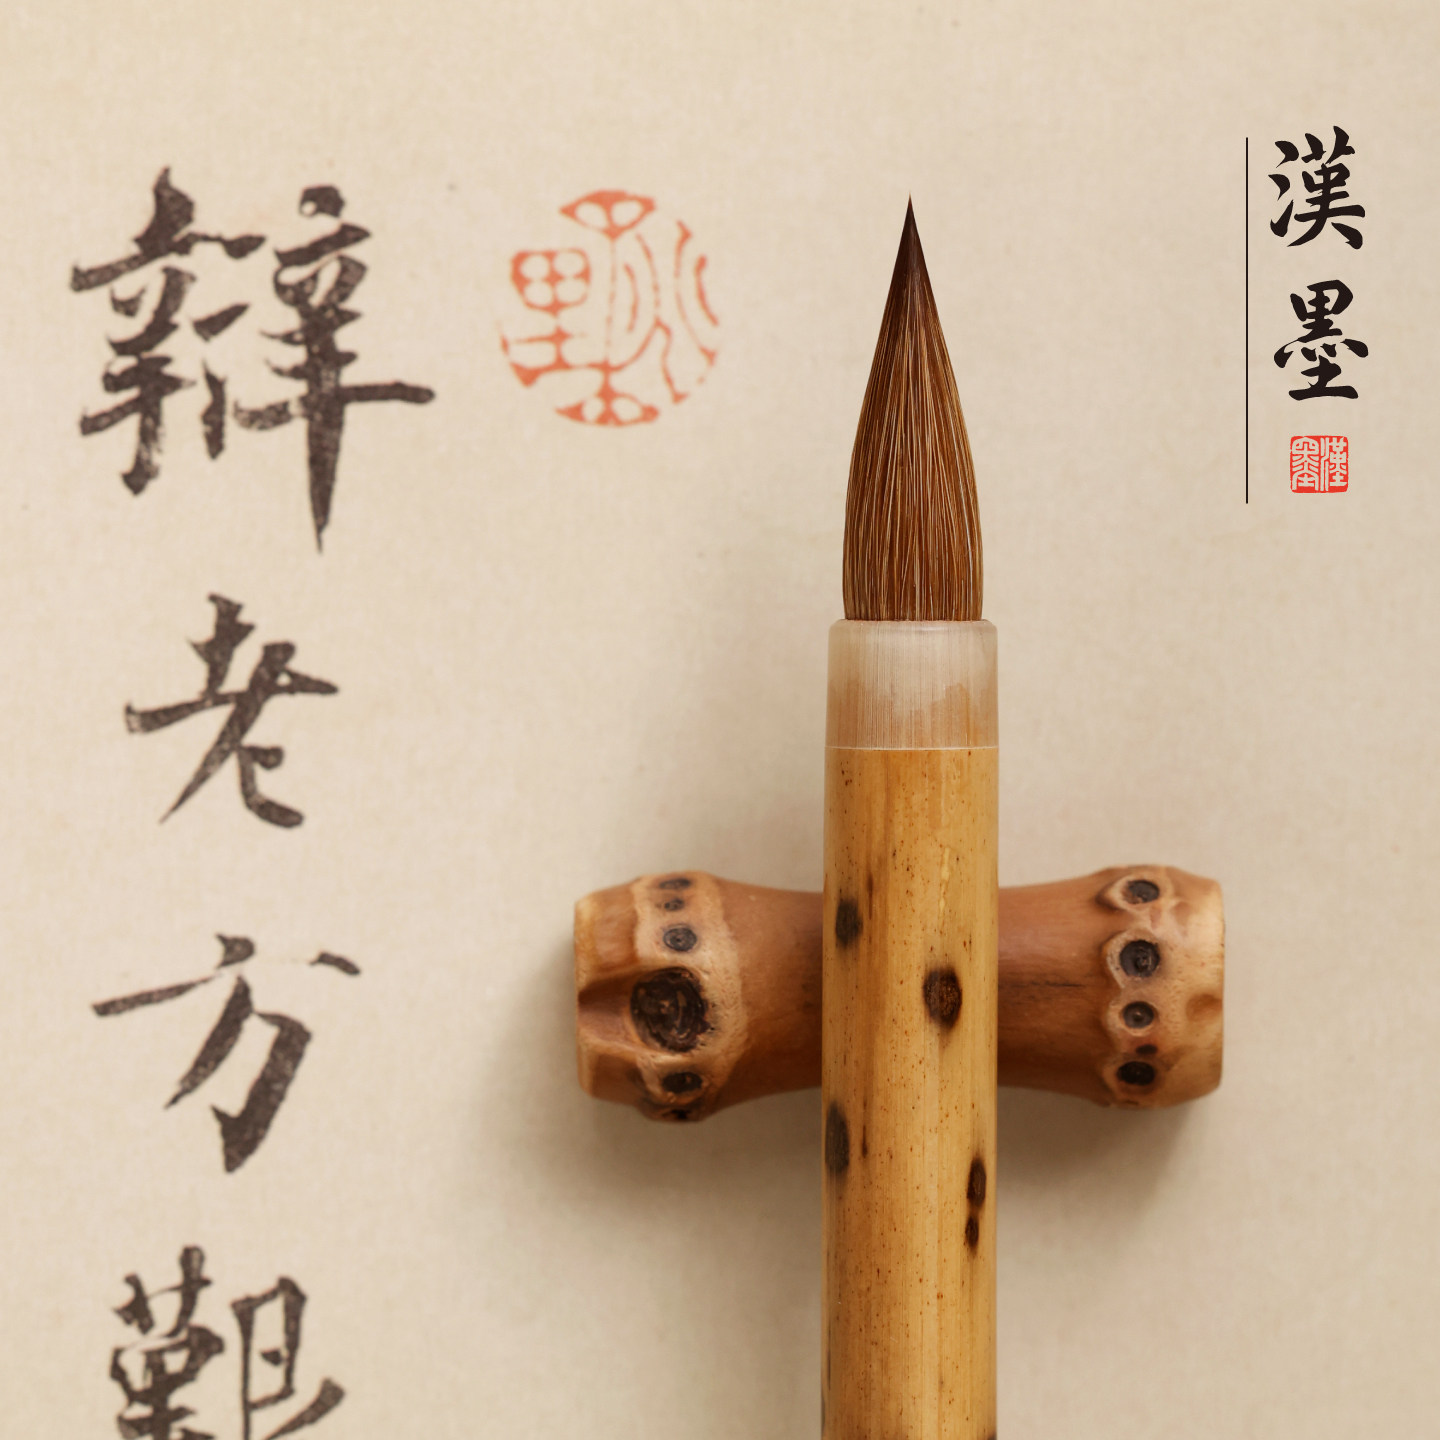 漢墨
漢墨
辯老方艱